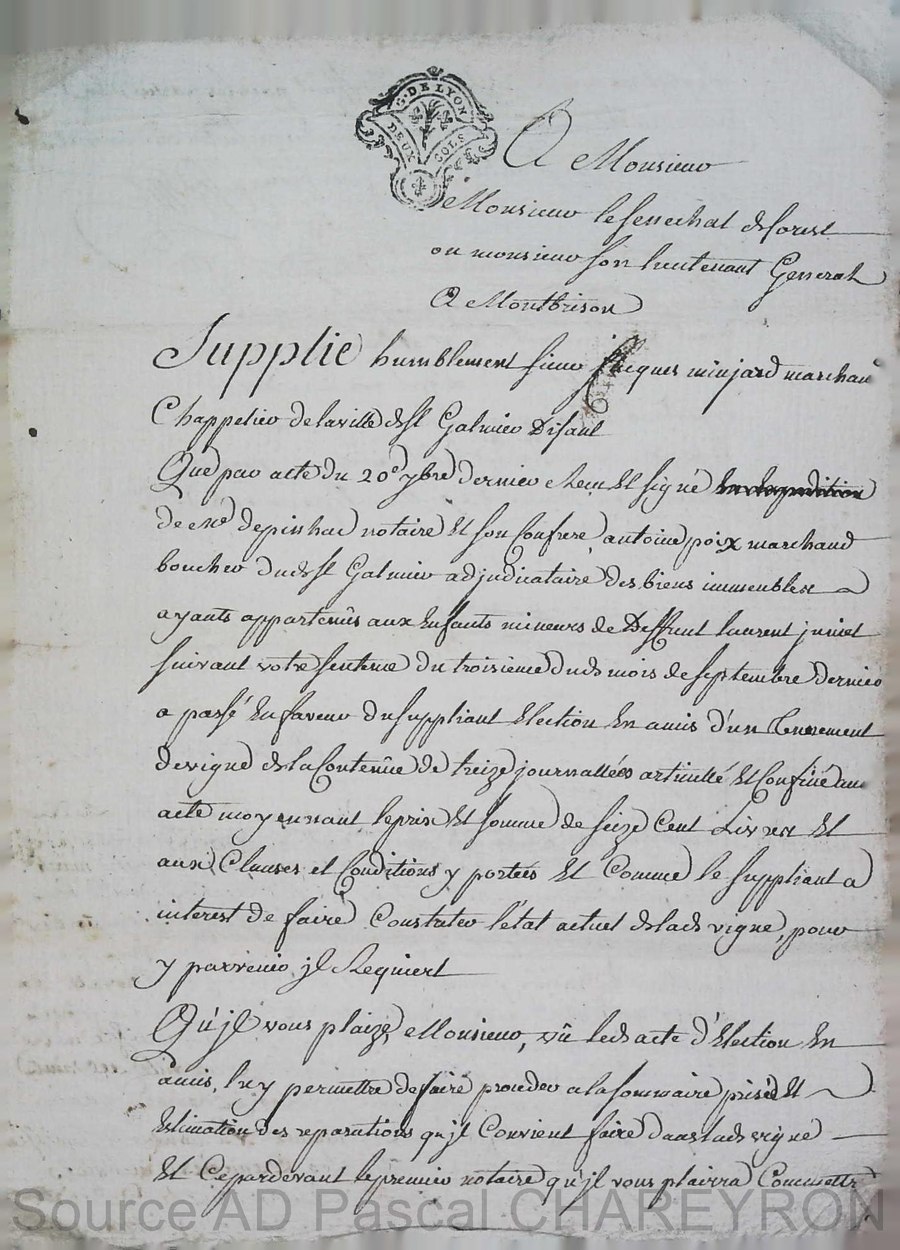 G. DE LYON
DEUX SOLS
A Monsieur
Monsieur le senechal de forest
ou monsieur son lieutenant General
A Montbrison
Supplie humblement sieur Jacques minjard marchan
Chappelier de la ville de St Galmier Disant
Que par acte du 20e 7bre dernier Receu Et signé
de Me depinhac notaire Et son Confrere, antoine poix marchand
boucher dud St Galmier adjudicataire des biens immeubles
ayants appartenûs aux Enfants mineurs de Deffunt laurent
suivant votre sentence du troisieme dud mois de septembre dernier
a passé En faveur du suppliant Election En amis d'un Tenement
de vigne de la Contenûe de treize journallées articullé Et Confiné aud
acte moyennant le prix Et somme de seize Cent Livres Et
aux Clauses et Conditions y portées Et Comme le suppliant a
interest de faire Constater l'état actuel de lad vigne, pour
y parvenir, jl Requiert
Qu'jl vous plaize, Monsieur, vû led acte d'Election En
amis, luy permettre de faire proceder a la sommaire prisée Et
Estimation des reparations qu'jl Convient faire dans lad vigne
Et Ce pardevant le premier notaire qu'jl vous plairra Commettre
Source AD Pascal CHAREYRON